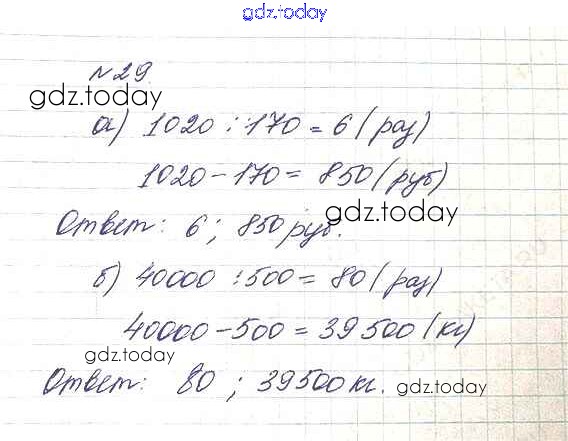 gdz.today
№29.
gdz.today
а) 1020 : 170 = 6 (раз)
1020 - 170 = 850 (руб)
gdz.today
Ответ: 6; 850 руб.
б) 40000 : 500 = 80 (раз)
40000 - 500 = 39500 (кг)
gdz.today
Ответ: 80; 39500 кг.
gdz.today